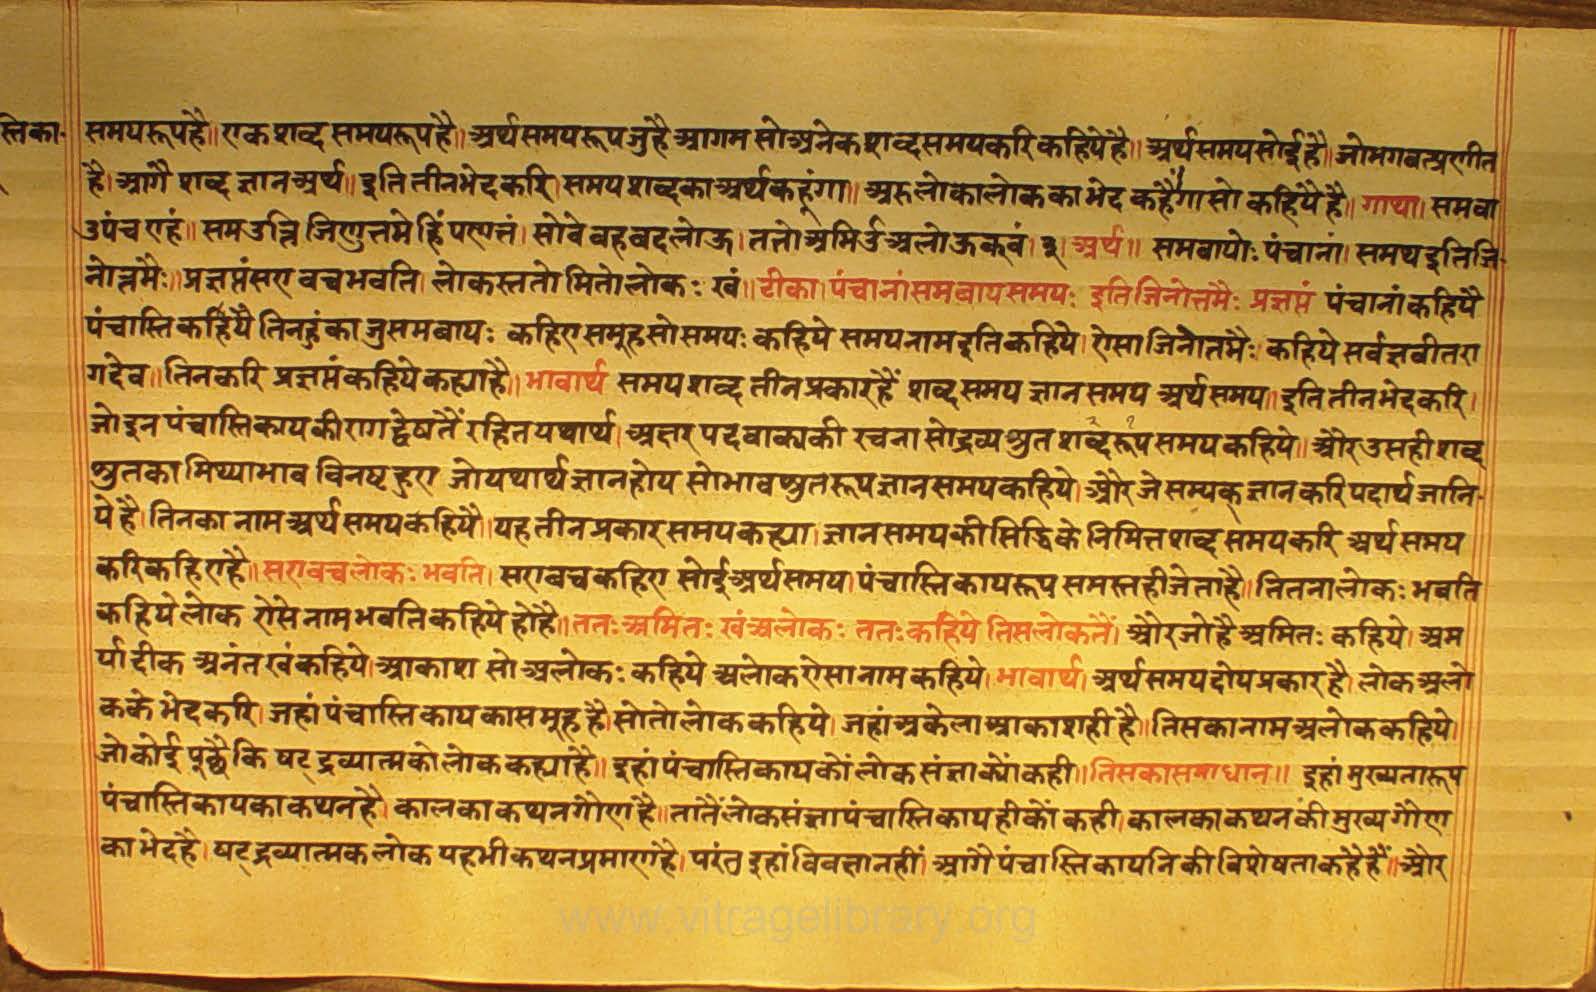 स्तिका- समयरूपहै॥ एक शब्द समयरूपहै॥ अर्थसमयरूप जुहै आगम सो अनेक शब्दसमयकरि कहियेहै॥ अर्थसमय सोईहै॥ जोभगवत्प्रणीत
है। आगै शब्द ज्ञान अर्थ॥ इति तीनभेदकरि। समय शब्दका अर्थ कहूंगा॥ अरु लोकालोक का भेद कहैंगा सो कहियै है॥ गाथा। समवा
उपंचएहं॥ समउत्ति जिणुत्तमेहिं पण्णत्तं। सोवेवहवदलोऊ। तत्तो अमिर्उ अलोऊकवं। ३। अर्थ॥ समवायोः पंचानां। समय इतिजि-
नोत्तमैः॥ प्रज्ञप्तंसए वच भवति। लोकस्ततो मितोलोकः खं॥ टीका। पंचानांसमवायसमयः इतिजिनोत्तमैः प्रज्ञप्तं पंचानां कहियै
पंचास्ति कहियै तिनहुंका जुसमवायः कहिए समूह सो समयः कहिये समयनाम इति कहिये। ऐसा जिनोतमैः कहिये सर्वज्ञवीतरा
गदेव॥ तिनकरि प्रज्ञप्तंकहिये कह्याहै॥ भावार्थ समयशब्द तीनप्रकारहैं शब्दसमय ज्ञानसमय अर्थसमय॥ इति तीनभेदकरि।
जोइन पंचास्तिकायकीरागद्वेषतैं रहितयथार्थ। अक्षर पदवाक्यकी रचना सोद्रव्यश्रुत शब्दरूपसमय कहिये॥ और उसही शब्द
श्रुतका मिथ्याभाव विनष्ट हुए जोयथार्थ ज्ञानहोय सोभावश्रुतरूप ज्ञानसमयकहिये। और जे सम्यक् ज्ञानकरि पदार्थ जानि-
ये है। तिनका नाम अर्थसमयकहियै। यह तीनप्रकार समयकह्या। ज्ञानसमयकी सिद्धिके निमित्त शब्दसमयकरि अर्थसमय
करिकहिएहै॥ सएवचलोकः भवति। सएवच कहिए सोई अर्थसमय। पंचास्तिकायरूप समस्तही जेताहै॥ तितनालोकः भवति
कहियेलोक ऐसे नाम भवति कहिये होहै॥ ततः अमितः खंअलोकः ततः कहिये तिसलोकतैं। और जोहै अमितः कहिये। अम
र्यादीक अनंत खंकहिये। आकाश सो अलोकः कहिये अलोक ऐसा नाम कहिये। भावार्थ। अर्थसमय दोयप्रकार है। लोक अलो
कके भेदकरि। जहां पंचास्तिकायकासमूह है। सोतो लोककहिये। जहां अकेला आकाशहीहै॥ तिसकानाम अलोककहिये।
जोकोई पूछैकि षट् द्रव्यात्मको लोककह्याहै॥ इहां पंचास्तिकायकों लोकसंज्ञा क्यों कही॥ तिसकासमाधान॥ इहां मुख्यतारूप
पंचास्तिकायका कथनहै। कालका कथनगौणहै॥ तातैंलोकसंज्ञा पंचास्तिकायहीकों कही। कालका कथनकी मुख्यगौण
का भेदहै। षट् द्रव्यात्मक लोक यहभी कथनप्रमाणहै। परंतु इहां विवक्षानहीं। आगै पंचास्तिकायनिकी विशेषता कहैहैं॥ और
www.vitragelibrary.org